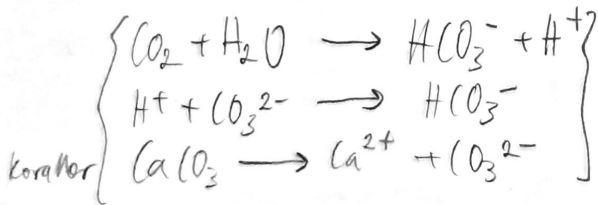 CO₂ + H₂O ⟶ HCO₃⁻ + H⁺
H⁺ + CO₃²⁻ ⟶ HCO₃⁻
Korallor CaCO₃ ⟶ Ca²⁺ + CO₃²⁻